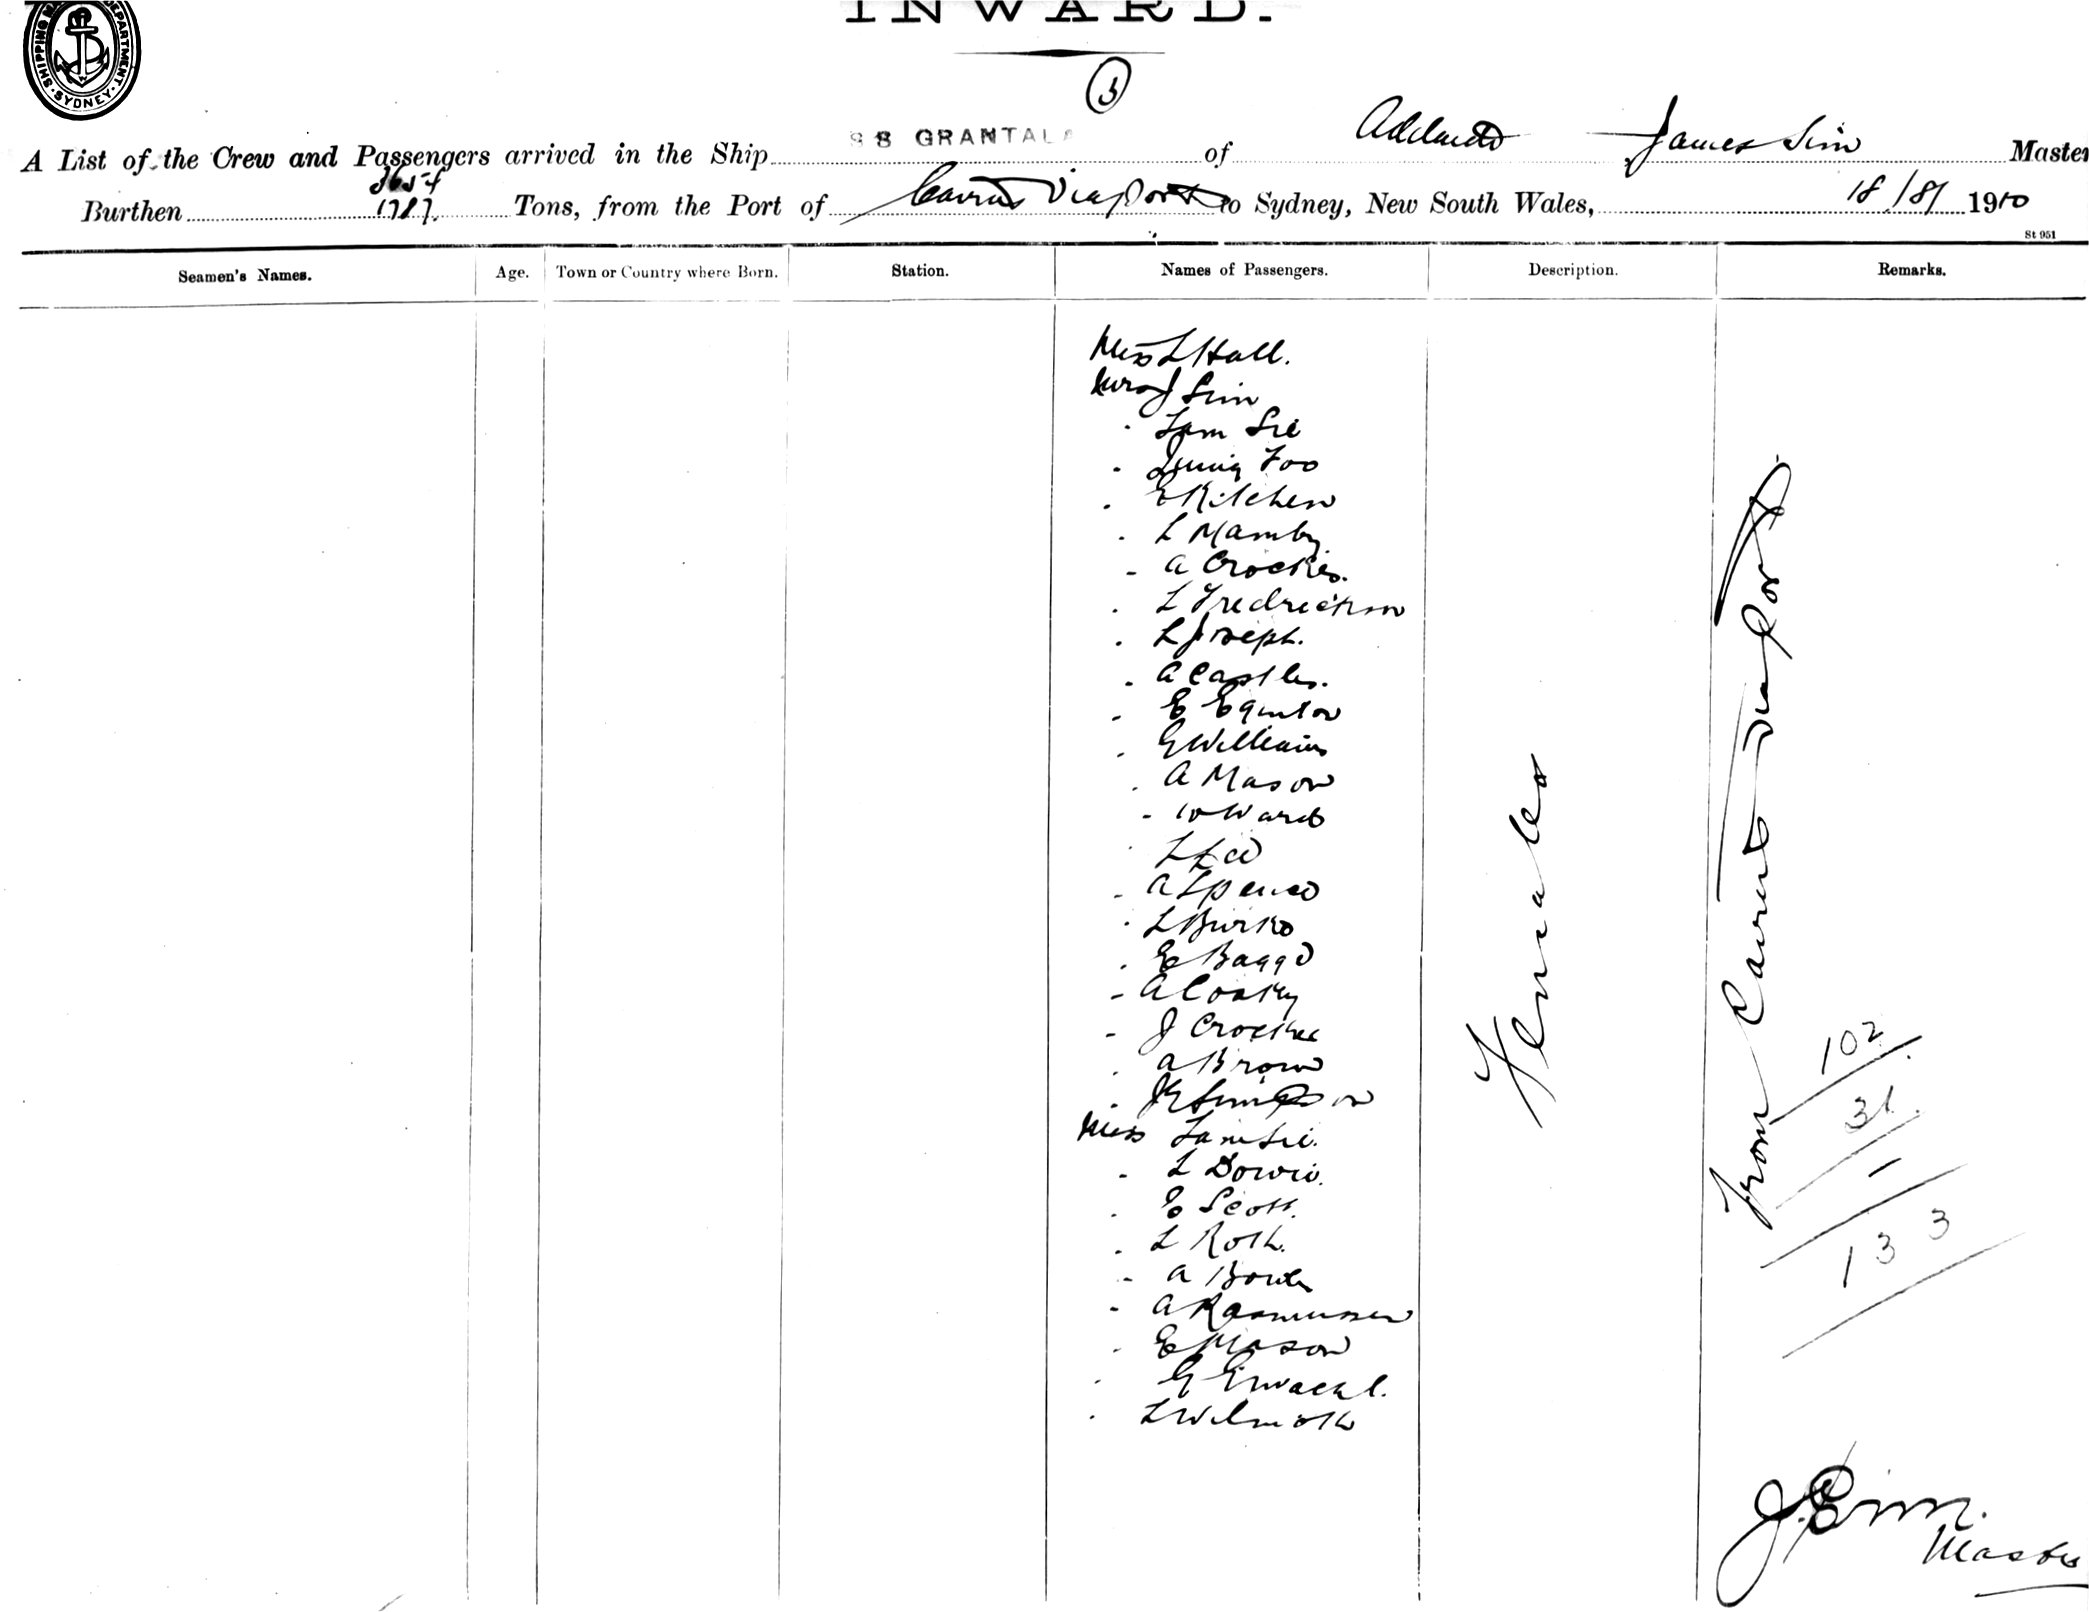 INWARD.
SHIPPING DEPARTMENT SYDNEY
3
A List of the Crew and Passengers arrived in the Ship SS GRANTALA of Adelaide James Sim Master
3654
Burthen 1787 Tons, from the Port of Cairns Via Ports to Sydney, New South Wales, 18/8/ 1910
St 951
Seamen's Names. Age. Town or Country where Born. Station. Names of Passengers. Description. Remarks.
Miss L Hall.
Mrs J Sim
" Lam Sie
" Foo
" E Kitchen
" L Mamby
" A Crocker.
" L Fredrickson
" L Joseph.
" A Castles.
" E Eginton
" G Williams
" A Mason
- W Ward
" L Lee
- A Spence
" L Burke
" E Bagge
- A Coaky
- J Crocker
" A Brown
" Simpson
Miss Lam Sie.
- L Dowie.
" E Scott.
" L Roth.
- A Bowle
- A Rasmussen
" E Mason
" G
" L Wilmoth
Females
From Cairns Via Ports
102
31
1
133
J. Sim.
Master